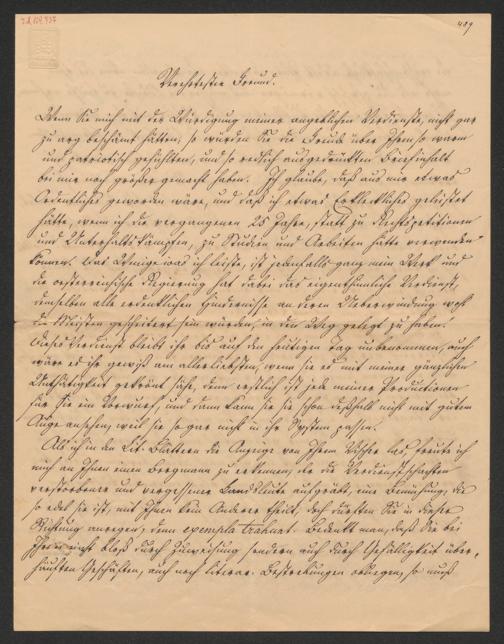 I.N. 104.937
489
Verehrtester Freund.
Wenn Sie mich mit der Würdigung meiner angeblichen Verdienste, nicht gar
zu arg beschämt hätten, so würden Sie die Freude über Ihren so warm
und patriotisch gefühlten, und so redlich ausgedrückten Briefinhalt
bei mir noch größer gemacht haben. Ich glaube, daß aus mir etwas
Ordentliches geworden wäre, und daß ich etwas Erkleckliches geleistet
hätte, wenn ich die vergangenen 25 Jahre, statt zu Rechtspetitionen
und Unterhaltskämpfen, zu Studien und Arbeiten hätte verwenden
können. Das Wenige was ich leiste, ist jedenfalls ganz mein Werk und
die oesterreichische Regierung hat dabei das eigenthümliche Verdienst,
demselben alle erdenklichen Hindernisse an deren Ueberwindung wohl
die Meisten gescheitert sein würden, in den Weg gelegt zu haben.
Dieses Verdienst bleibt ihr bis auf den heutigen Tag unbenommen, auch
wäre es ihr gewiß am allerliebsten, wenn sie es mit meiner gänzlichen
Unthätigkeit gekrönt sähe, denn erstlich ist jede meiner Productionen
für Sie ein Vorwurf, und dann kann sie sie schon deßhalb nicht mit gutem
Auge ansehen, weil sie so gar nicht in ihr System passen.
Als ich in den Lit. Blättern die Anzeige von Ihrem Bücher las, freute ich
mich an Ihnen einen Bergmann zu erkennen, der die Verdienstschaften
verstorbener und vergessener Landsleute aufgräbt, eine Bemühung, die
so edel sie ist, mit Ihnen kein Anderer theilt, doch dürften Sie in dieser
Richtung anregen, denn exempla trahunt. Bedenkt man, daß Sie bei
Ihren nicht bloß durch Zuweisung sondern auch durch Gefälligkeit über-
häuften Geschäften, auch noch literar. Bestrebungen obliegen, so muß